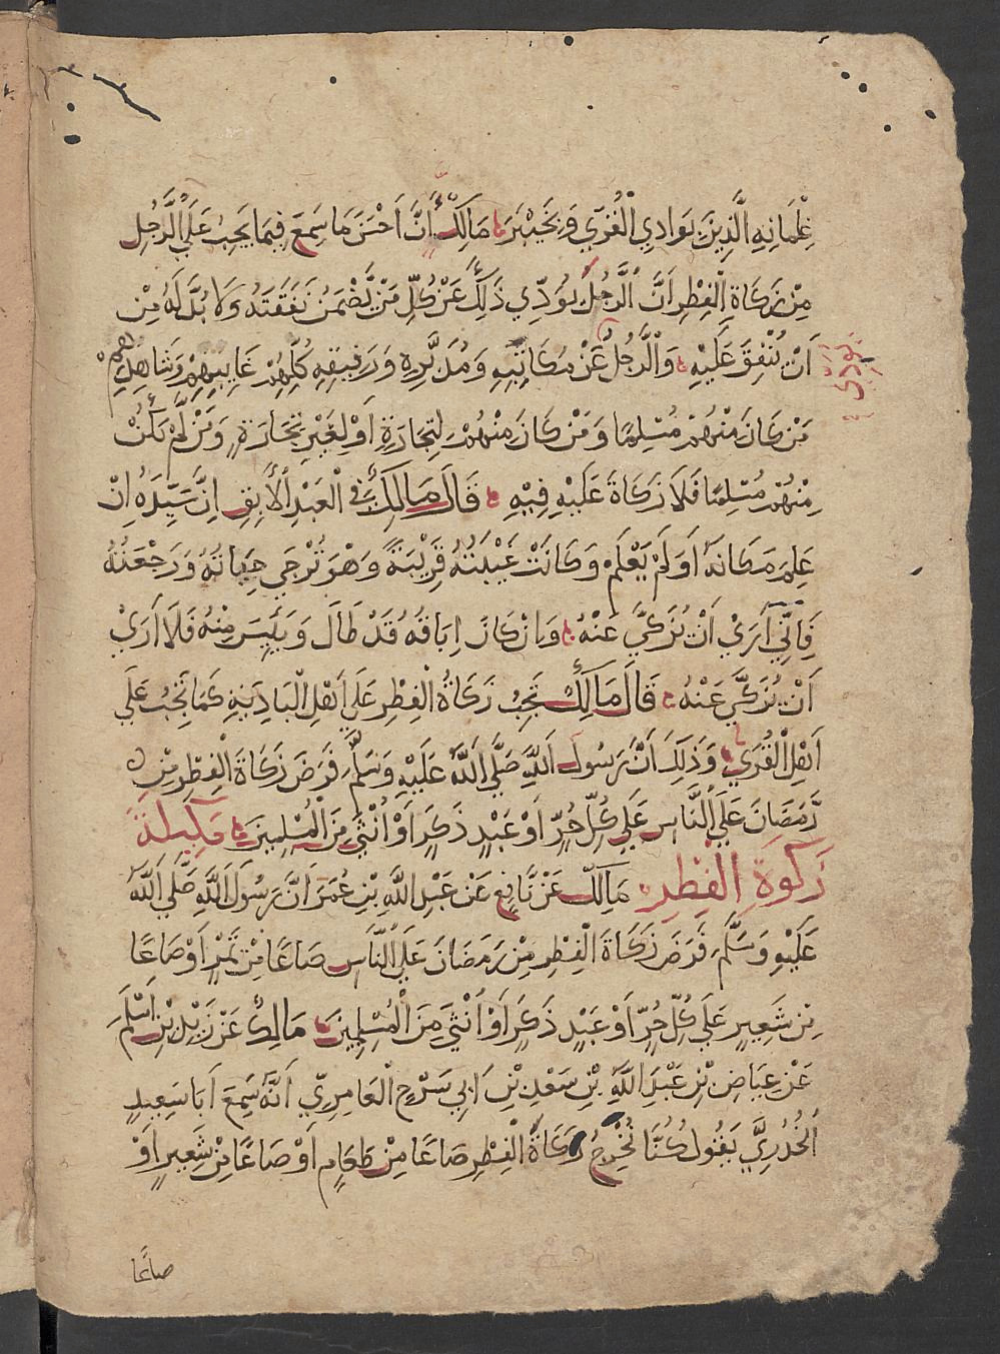 غِلْمَانِهِ الَّذِينَ بِوَادِي الْقُرَى وَبِخَيْبَرَ مَالِكٌ أَنَّ أَحْسَنَ مَا سَمِعَ فِيمَا يَجِبُ عَلَي الرَّجُلِ
مِنْ زَكَاةِ الْفِطْرِ اَنَّ الرَّجُلَ يُوَدِّي ذَلِكَ عَنْ كُلِّ مَنْ يَّضْمَنُ نَفَقَتَهُ وَلَا بُدَّ لَهُ مِن
اَنْ يُنْفِقَ عَلَيْهِ وَالرَّجُلُ عَنْ مُكَاتَبِهِ وَمُدَبَّرِهِ وَرَقِيقِهِ كُلِّهِمْ غَايِبِهِمْ وَشَاهِدِهِمْ
يودي
مَنْ كَانَ مِنْهُمْ مُسْلِمًا وَمَنْ كَانَ مِنْهُمْ لِتِجَارَةٍ اَوْ لِغَيْرِ تِجَارَةٍ وَمَنْ لَّمْ يَكُنْ
مِنْهُمْ مُسْلِمًا فَلَا زَكَاةَ عَلَيْهِ فِيْهِ قَالَ مَالِكٌ فِي الْعَبْدِ الْاٰبِقِ اِنَّ سَيِّدَهُ اِنْ
عَلِمَ مَكَانَهُ اَوَلَمْ يَعْلَمْ وَكَانَتْ غَيْبَتُهُ قَرِيْبَةً وَهْوَ تُرْجَي حَيَاتُهُ وَرَجْعَتُهُ
فَاِنِّي اَرَيْ اَنْ يُزَكِّيَ عَنْهُ وَاِنْ كَانَ اِبَاقُهُ قَدْ طَالَ وَيَيِسَ مِنْهُ فَلَا اَرَيْ
اَنْ يُزَكِّيَ عَنْهُ قَالَ مَالِكٌ تَجِبُ زَكَاةُ الْفِطْرِ عَلَي اَهْلِ الْبَادِيَةِ كَمَا تَجِبُ عَلَي
اَهْلِ الْقُرَي وَذَلِكَ اَنَّ رَسُولَ اللَّهِ صَلَّي اللَّهُ عَلَيْهِ وَسَلَّمَ فَرَضَ زَكَاةَ الْفِطْرِ مِن
رَّمَضَانَ عَلَي النَّاسِ عَلَي كُلِّ حُرٍّ اَوْ عَبْدٍ ذَكَرٍ اَوْ اُنْثَي مِنَ الْمُسْلِمِينَ مَكِيلَة
زَكٰوةِ الْفِطْرِ مَالِكٌ عَنْ نَّافِعٍ عَنْ عَبْدِ اللَّهِ بْنِ عُمَرَ اَنَّ رَسُولَ اللَّهِ صَلَّي اللَّهُ
عَلَيْهِ وَسَلَّمَ فَرَضَ زَكَاةَ الْفِطْرِ مِنْ رَمَضَانَ عَلَي النَّاسِ صَاعًا مِنْ تَمْرٍ اَوْ صَاعًا
مِن شَعِيرٍ عَلَي كُلِّ حُرٍّ اَوْ عَبْدٍ ذَكَرٍ اَوْ اُنْثَي مِنَ الْمُسْلِمِينَ مَالِكٌ عَنْ زَيْدِ بْنِ اَسْلَمَ
عَنْ عِيَاضِ بْنِ عَبْدِ اللَّهِ بْنِ سَعْدِ بْنِ اَبِي سَرْحٍ الْعَامِرِيِّ اَنَّهُ سَمِعَ اَبَا سَعِيدٍ
الْخُدْرِيَّ يَقُولُ كُنَّا نُخْرِجُ زَكَاةَ الْفِطْرِ صَاعًا مِنْ طَعَامٍ اَوْ صَاعًا مِنْ شَعِيرٍ اَوْ
صاعًا